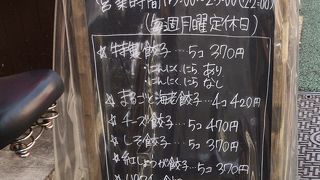 営業時間 17:00～23:00(22:00)
(毎週月曜定休日)
☆特製餃子…5コ 370円
・にんにく にら あり
・にんにく にら なし
☆まるごと海老餃子…4コ 420円
☆チーズ餃子…5コ 470円
☆しそ餃子…5コ 370円
☆紅しょうが餃子…5コ 370円